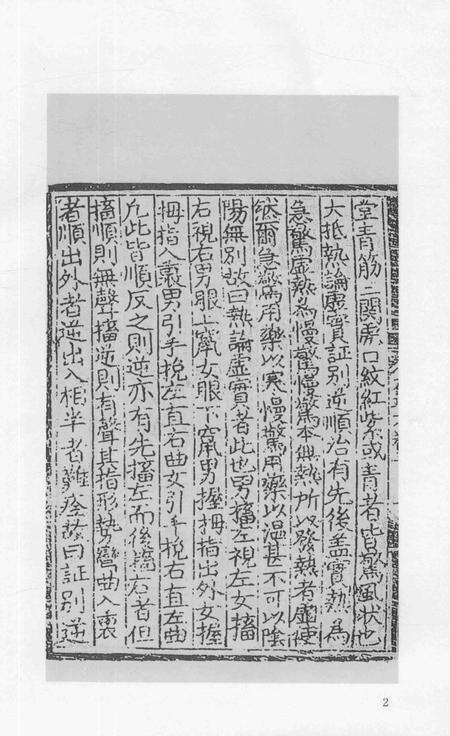 堂青筋三關虎口紋紅紫或青者皆驚風状也
大抵熱論虛實証別逆順治有先後盖實熱為
急驚虛熱為慢驚慢驚本無熱所以發熱者虛使
然爾急驚用藥以寒慢驚用藥以温甚不可以陰
陽無別故曰熱論虛實者此也男搐左視左女搐
右視右男眼上竄女眼下竄男握拇指出外女握
拇指入裏男引手挽左直右曲女引手挽右直左曲
凡此皆順反之則逆亦有先搐左而後搐右者但
搐順則無聲搐逆則有聲其指形勢彎曲入裏
者順出外者逆出入相半者難痊故曰証別逆
2